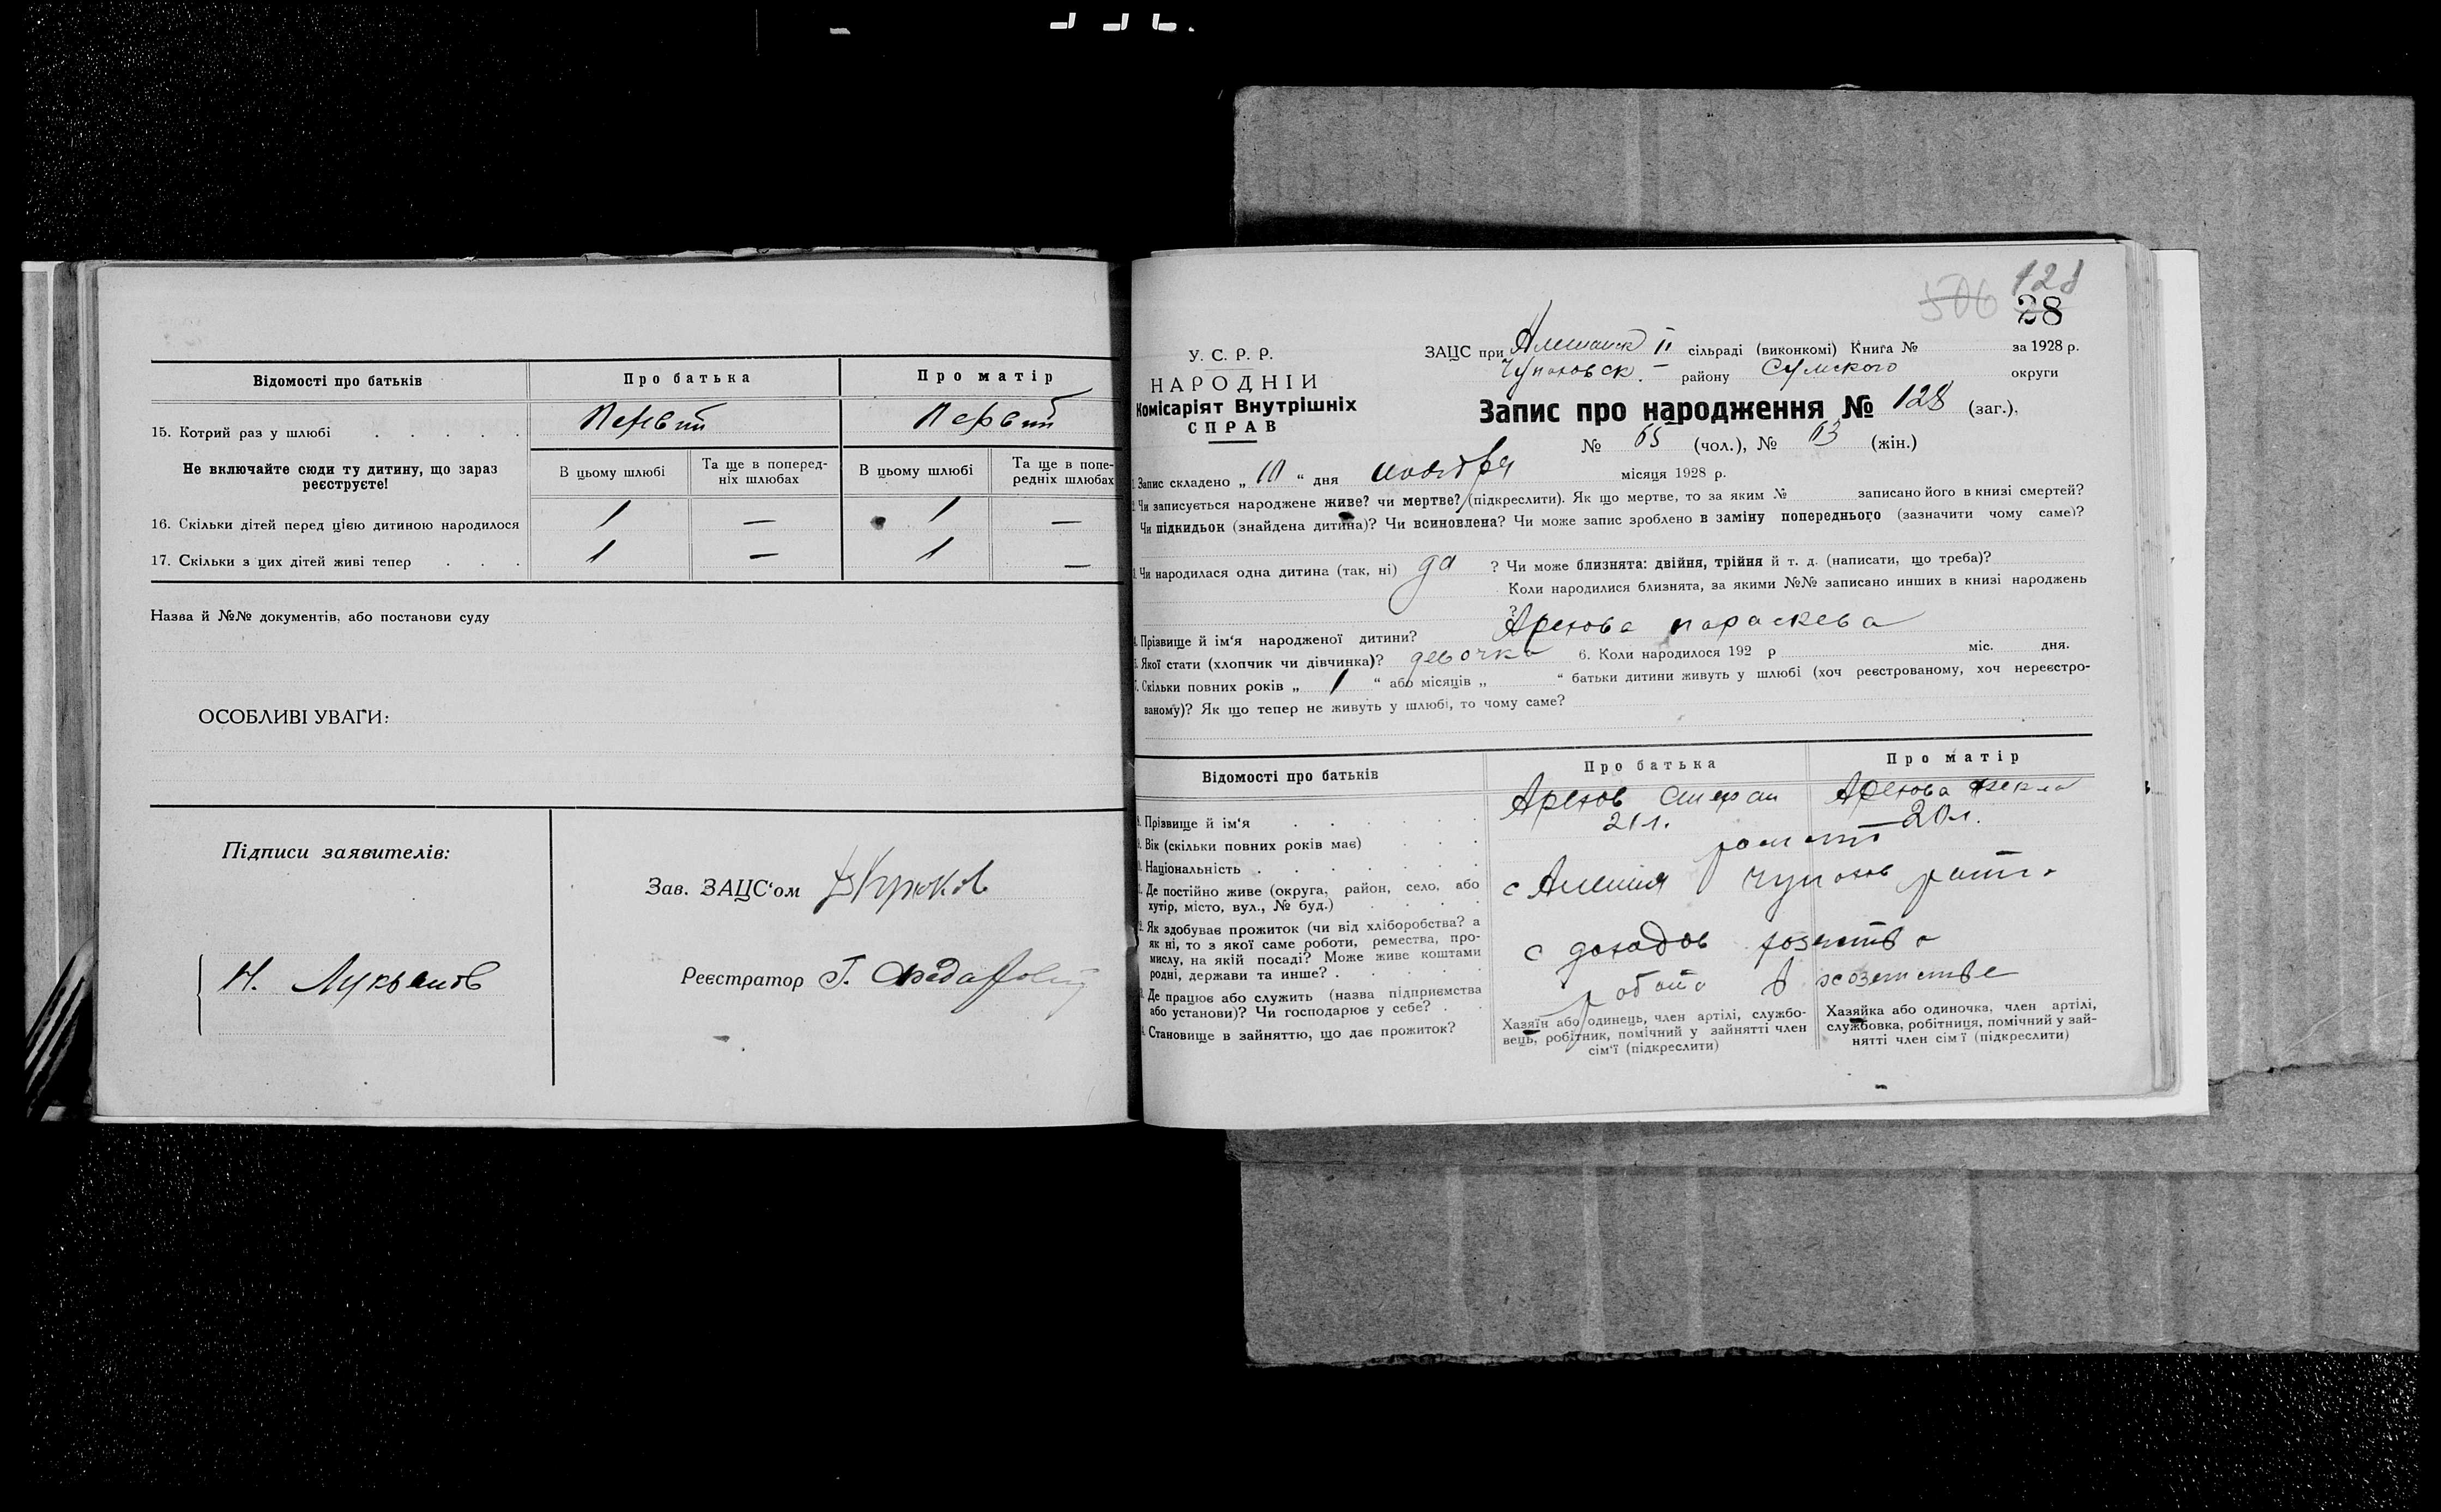 Відомості про батьків
Про батька
Про матір
15. Котрий раз у шлюбі
Первый
Первый
Не включайте сюди ту дитину, що зараз реєструєте!
В цьому шлюбі
Та ще в поперед-
ніх шлюбах
В цьому шлюбі
Та ще в попе-
редніх шлюбах
16. Скільки дітей перед цією дитиною народилося
1 — 1 —
17. Скільки з цих дітей живі тепер
1 — 1 —
Назва й №№ документів, або постанови суду
ОСОБЛИВІ УВАГИ:
Підписи заявителів:
Н. Лукьянов
Зав. ЗАЦС'ом Крюков
Реєстратор Г.
506 128
28
У. С. Р. Р.
НАРОДНІЙ
Комісаріят Внутрішніх
СПРАВ
ЗАЦС при II сільраді (виконкомі) Книга № за 1928 р.
району Сумского округи
Запис про народження № 128 (заг.),
№ 65 (чол.), № 63 (жін.)
1. Запис складено „ 10 “ дня ноября місяця 1928 р.
2. Чи записується народжене живе? чи мертве? (підкреслити). Як що мертве, то за яким № записано його в книзі смертей?
Чи підкидьок (знайдена дитина)? Чи всиновлена? Чи може запис зроблено в заміну попереднього (зазначити чому саме)?
3. Чи народилася одна дитина (так, ні) да ? Чи може близнята: двійня, трійня й т. д. (написати, що треба)?
Коли народилися близнята, за якими №№ записано инших в книзі народжень
?
4. Прізвище й ім'я народженої дитини? Арехова параскева
5. Якої стати (хлопчик чи дівчинка)? девочка 6. Коли народилося 192 р міс. дня.
7. Скільки повних років „ 1 “ або місяців „ “ батьки дитини живуть у шлюбі (хоч реєстрованому, хоч нереєстро-
ваному)? Як що тепер не живуть у шлюбі, то чому саме?
Відомості про батьків
Про батька
Про матір
8. Прізвище й ім'я
Арехов
Арехова
9. Вік (скільки повних років має)
21 л.
20 л.
10. Національність
11. Де постійно живе (округа, район, село, або
хутір, місто, вул., № буд.)
с
12. Як здобуває прожиток (чи від хліборобства? а
як ні, то з якої саме роботи, ремества, про-
мислу, на якій посаді? Може живе коштами
родні, держави та инше?
с доходов
13. Де працює або служить (назва підприємства
або установи)? Чи господарює у себе?
в хозяистве
14. Становище в зайняттю, що дає прожиток?
Хазяїн або одинець, член артілі, службо-
вець, робітник, помічний у зайнятті член
сім'ї (підкреслити)
Хазяйка або одиночка, член артілі,
службовка, робітниця, помічний у зай-
нятті член сім'ї (підкреслити)